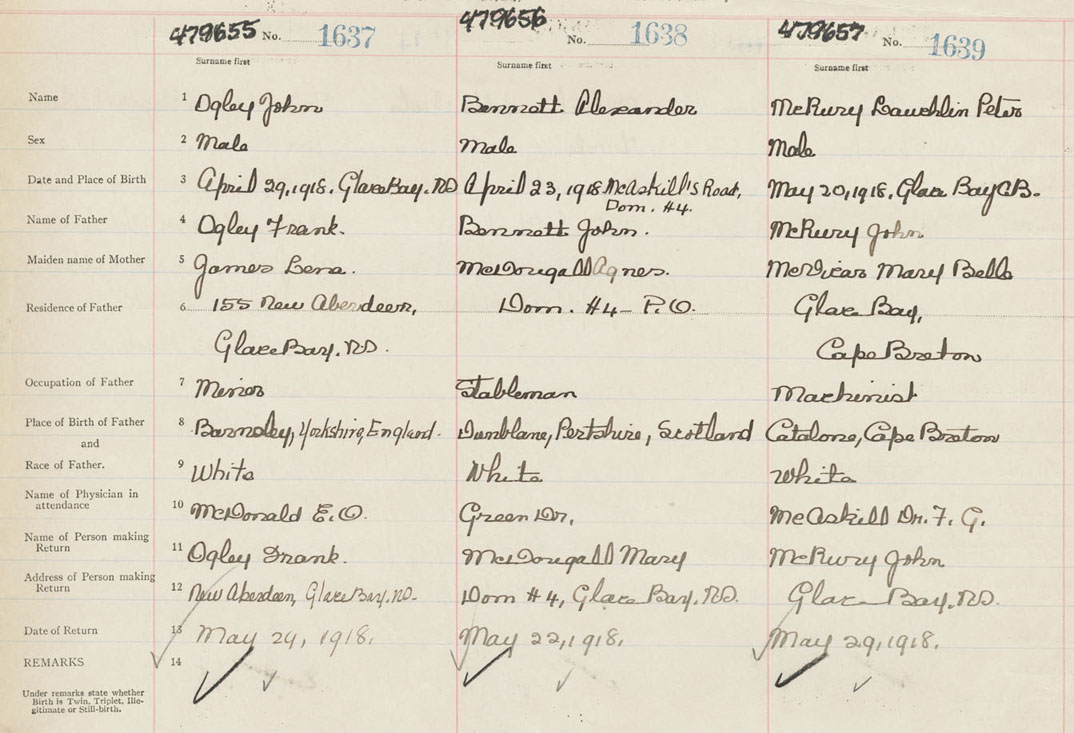 479655 No. 1637 479656 No. 1638 479657 No. 1639
Surname first Surname first Surname first
Name 1 Ogley John Bennett Alexander McRury Lauchlin Peter
Sex 2 Male Male Male
Date and Place of Birth 3 April 29, 1918. Glace Bay. N.S. April 23, 1918 McAskill's Road, May 20, 1918, Glace Bay C.B.
Dom. #4.
Name of Father 4 Ogley Frank. Bennett John. McRury John
Maiden name of Mother 5 James Lena. McDougall Agnes. McVicar Mary Bell
Residence of Father 6 155 New Aberdeen, Dom. #4 - P.O. Glace Bay,
Glace Bay. N.S. Cape Breton
Occupation of Father 7 Miner Stableman Machinist
Place of Birth of Father 8 Barnsley, Yorkshire, England. Dunblane, Pertshire, Scotland Catalone, Cape Breton
and
Race of Father. 9 White White White
Name of Physician in
attendance 10 McDonald E.O. Green Dr. McAskill Dr. F. G.
Name of Person making
Return 11 Ogley Frank. McDougall Mary McRury John
Address of Person making
Return 12 New Aberdeen, Glace Bay. N.S. Dom #4, Glace Bay. N.S. Glace Bay. N.S.
Date of Return 13 May 29, 1918. May 22, 1918. May 29, 1918.
REMARKS 14
Under remarks state whether
Birth is Twin, Triplet, Ille-
gitimate or Still-birth.